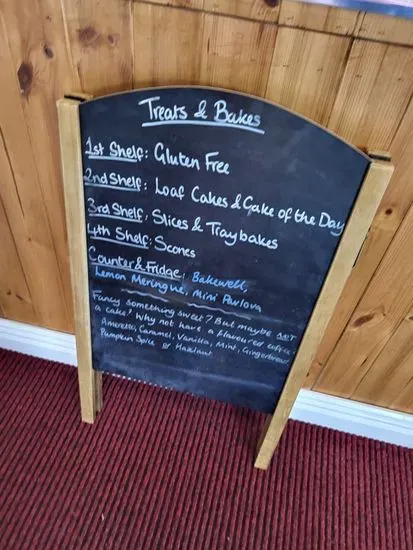 Treats & Bakes
1st Shelf: Gluten Free
2nd Shelf: Loaf Cakes & Cake of the Day
3rd Shelf: Slices & Traybakes
4th Shelf: Scones
Counter & Fridge: Bakewell,
Lemon Meringue, Mini Pavlova
Fancy something sweet? But maybe not
a cake? Why not have a flavoured coffee -
Amaretto, Caramel, Vanilla, Mint, Gingerbread
Pumpkin Spice or Hazelnut